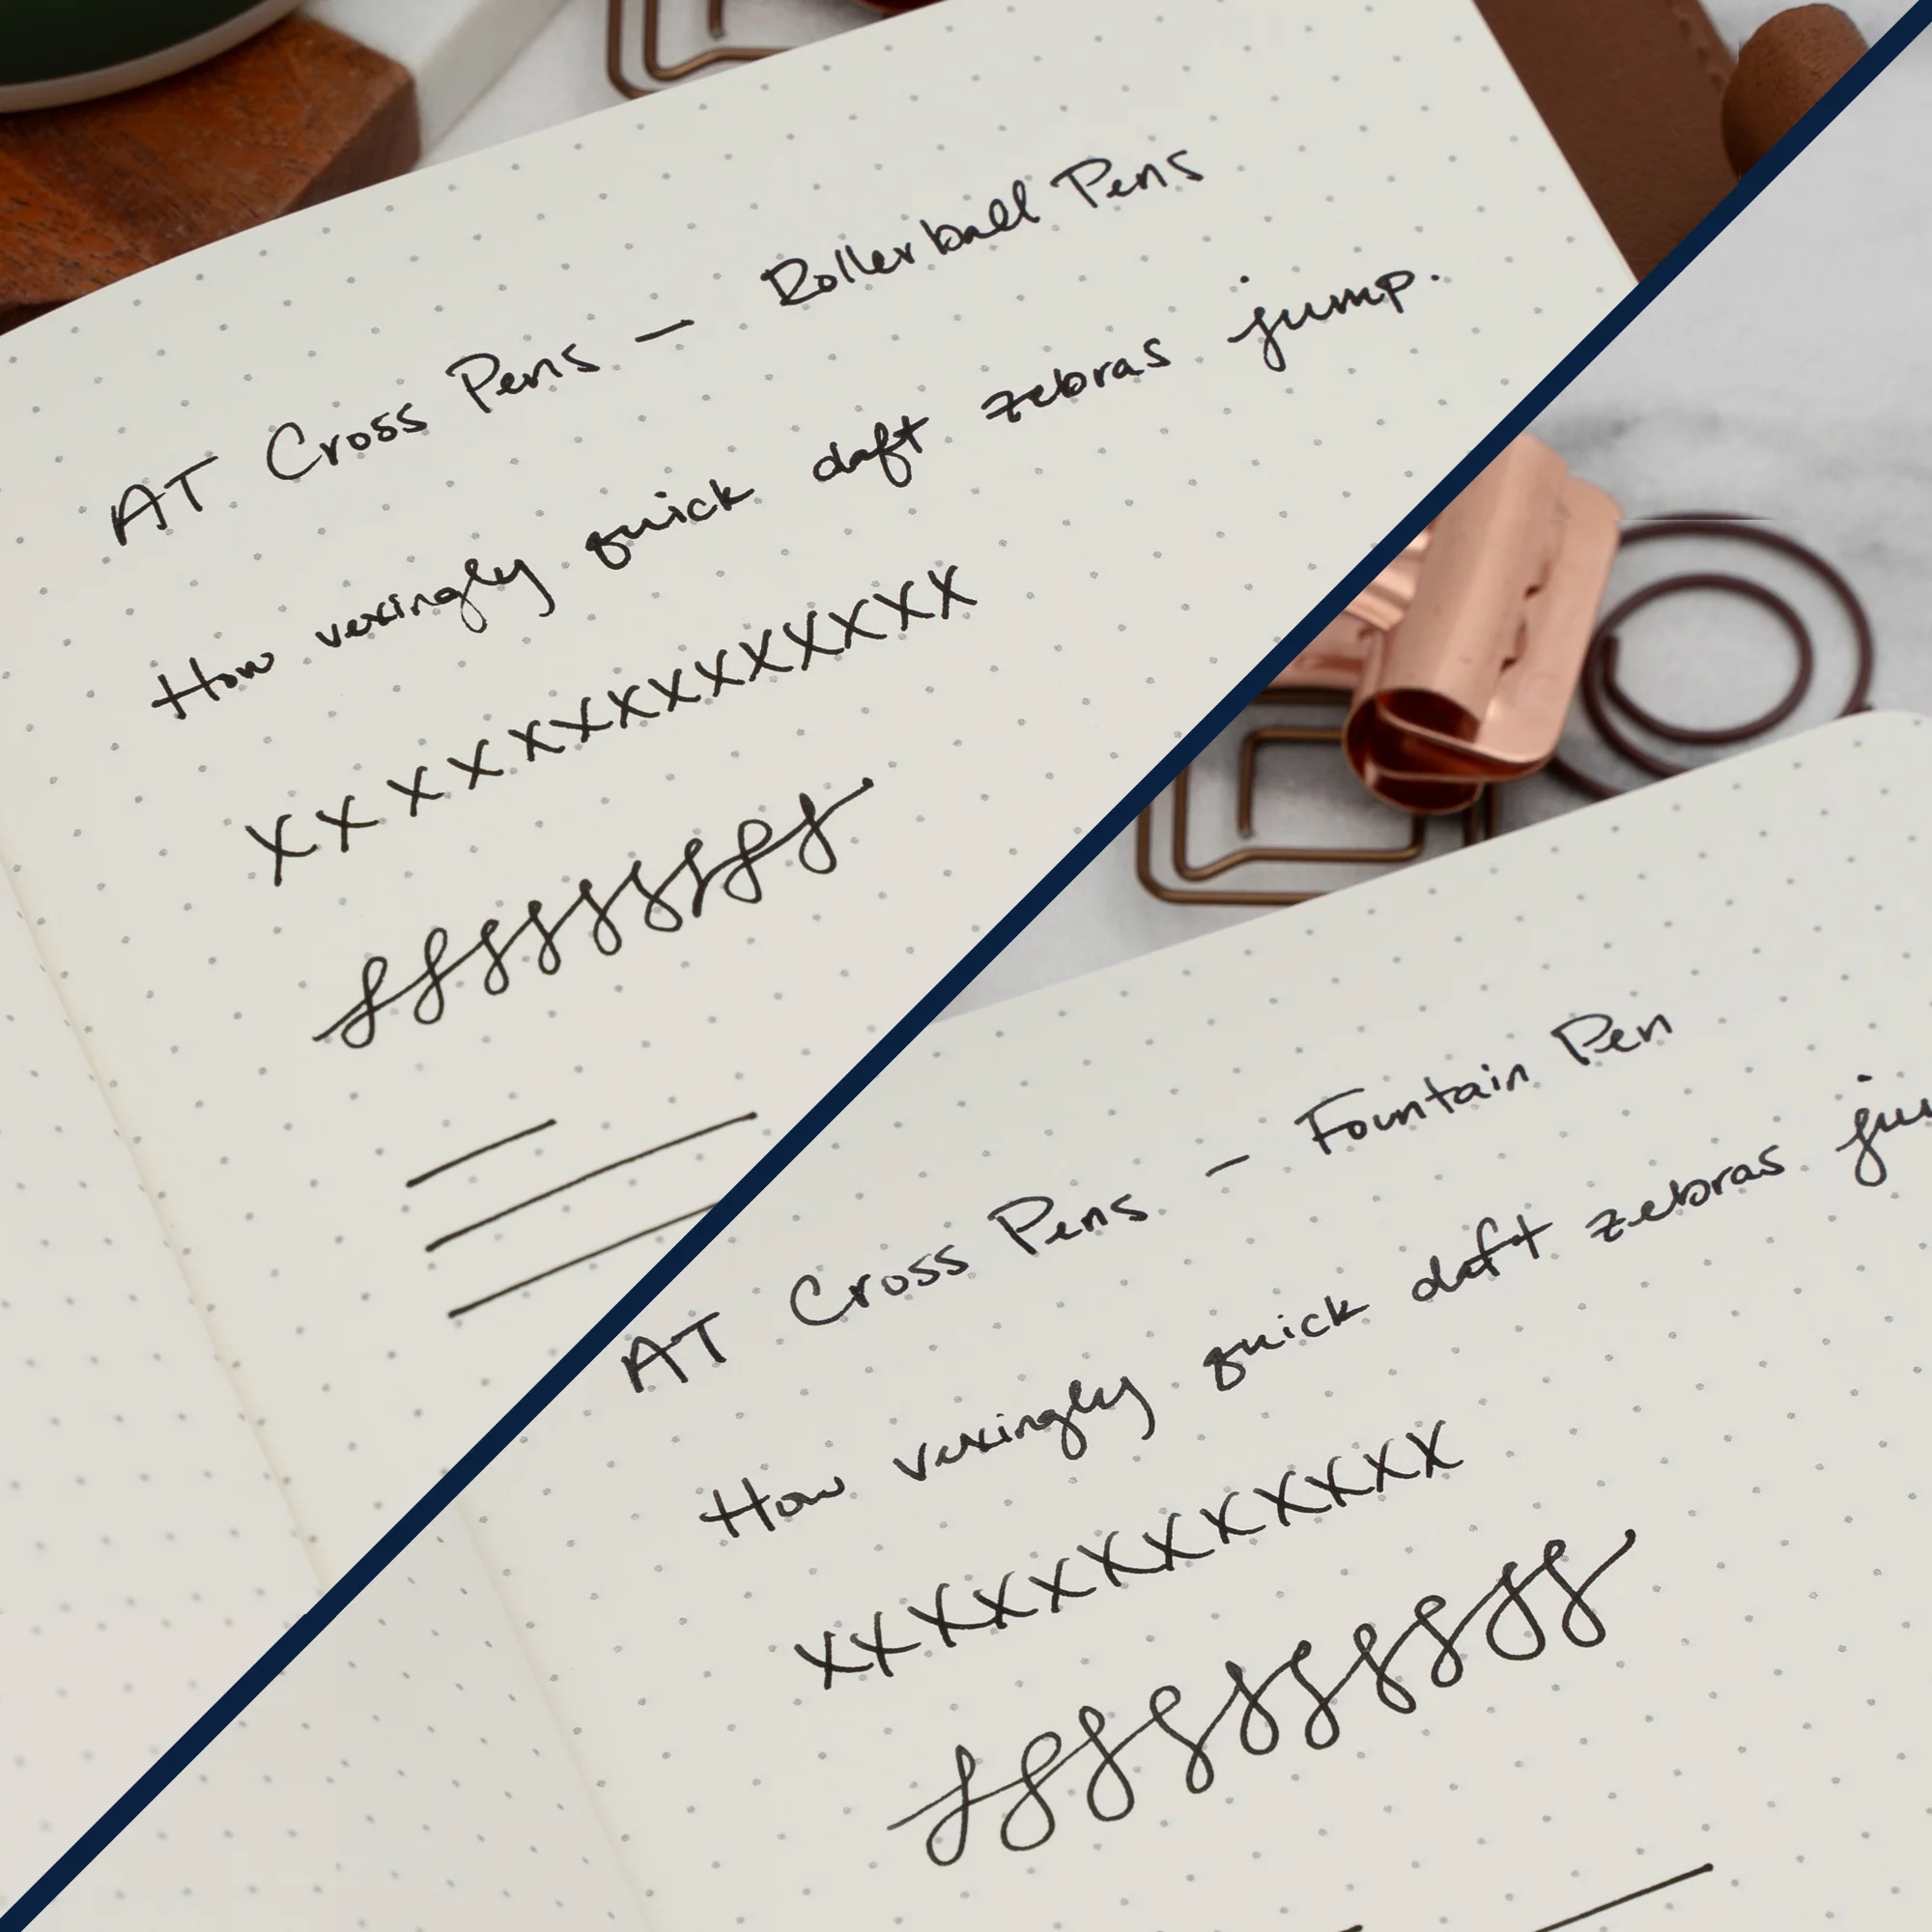 AT Cross Pens — Rollerball Pens
How vexingly quick daft zebras jump.
X X X X XXXXXXXXXX
AT Cross Pens - Fountain Pen
How vexingly quick daft zebras
XXXXXXXXXXXX